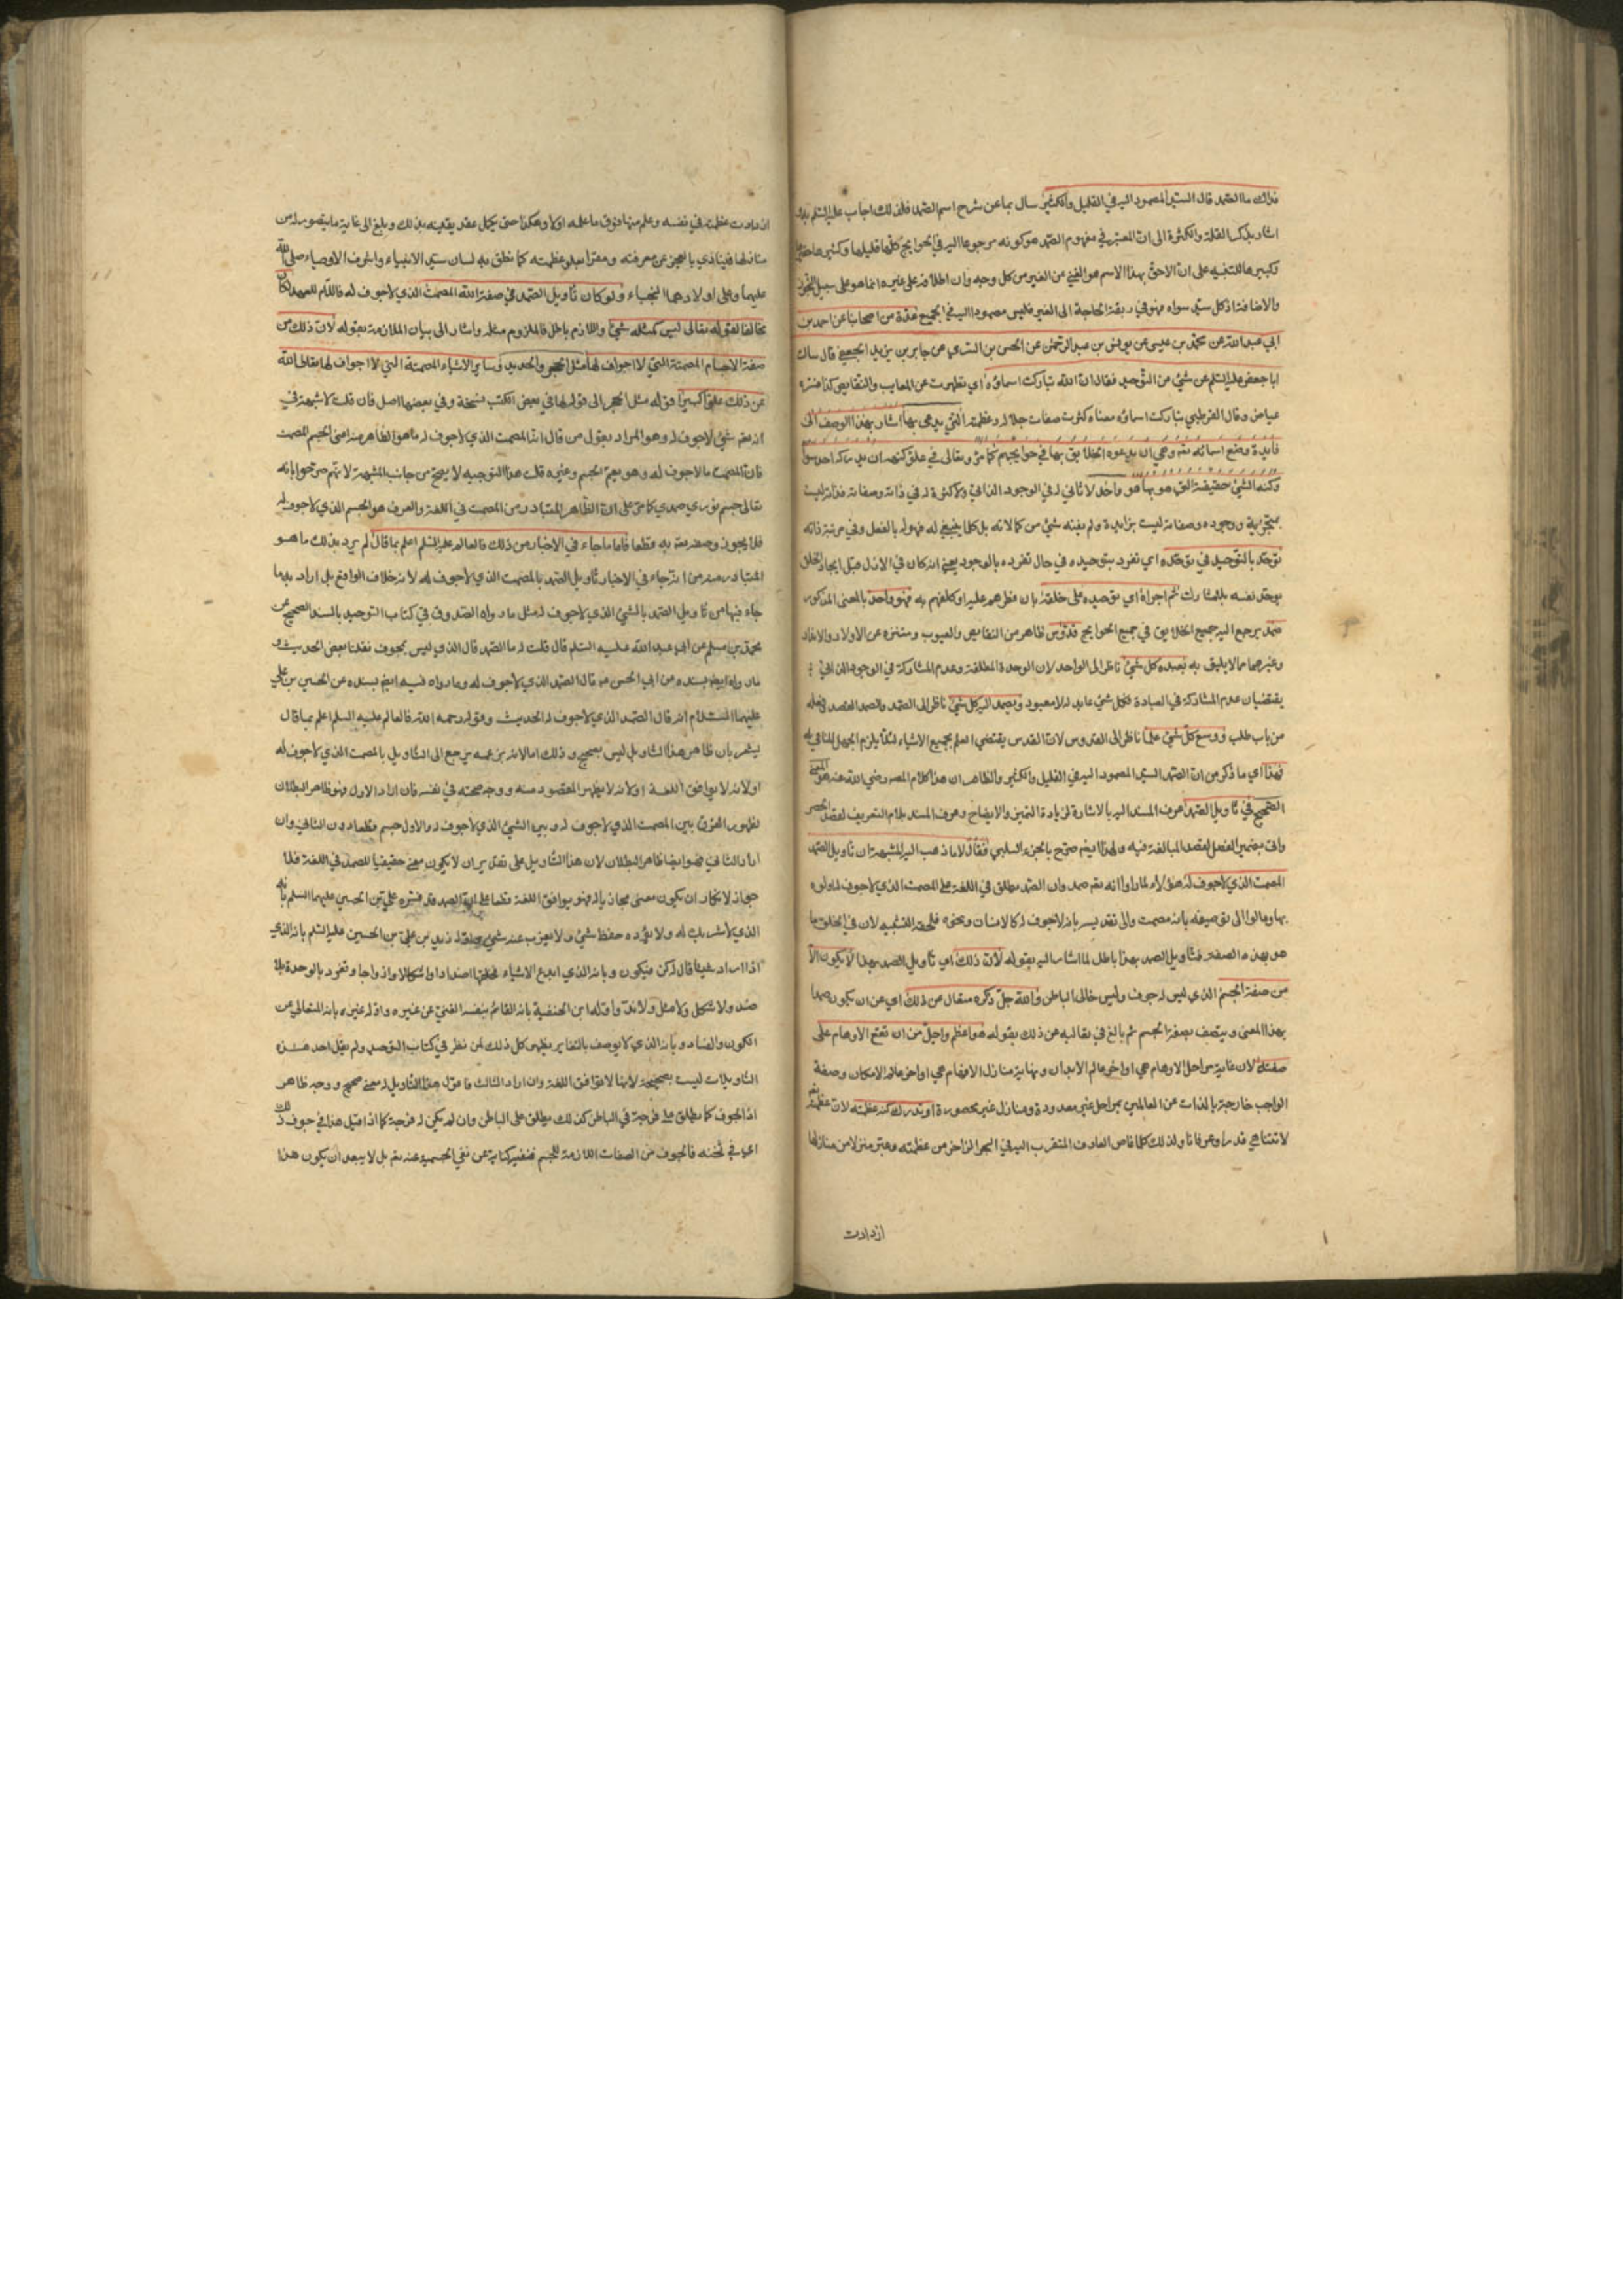 فداك ما الصمد قال السيد المصمود اليه في القليل والكثير سال بما عن شرح اسم الصمد فلذلك اجاب عليه السلم بذلك
اشار بذكر القلة والكثرة الى ان المعتبر في مفهوم الصمد هو كونه مرجوعا اليه في الحوايج كلها قليلها وكثيرها
وكبيرها للتنبيه على ان الاحق بهذا الاسم هو الغني عن الغير من كل وجه وان اطلاقه على غيره انما هو على سبيل التجوز
والاضافة اذ كل سيد سواه فهو في ربقة الحاجة الى الغير فليس مصمودا اليه في الجميع عدة من اصحابنا عن احمد بن
ابي عبد الله عن محمد بن عيسى عن يونس بن عبد الرحمن عن الحسن بن السري عن جابر بن يزيد الجعفي قال سالت
ابا جعفر عليه السلم عن شئ من التوحيد فقال ان الله تباركت اسماؤه اي تطهرت عن المعايب والنقايص كذا فسره
عياض وقال القرطبي تباركت اسماؤه معناه كثرت صفات جلاله وعظمته التي يدعى بها اشار بهذا الوصف الى
فايدة وضع اسمائه تعه وهي ان يدعوه الخلايق بها في حوايجهم كما مر وتعالى في علو كنهه ان يدركه احد سواه
وكنه الشئ حقيقته التي هو بها هو واحد لا ثاني له في الوجود الذاتي ولا كثرة له في ذاته وصفاته فذاته ليست
بمتجزية ووجوده وصفاته ليست بزايدة ولم يفته شئ من كمالاته بل كلما ينبغي له فهو له بالفعل وفي مرتبة ذاته
توحد بالتوحيد في توحده اي تفرد بتوحيده في حال تفرده بالوجود يعني انه كان في الازل قبل ايجاد الخلق
يوحد نفسه بلا مشارك ثم اجراه اي توحيده على خلقه بان فطرهم عليه او كلفهم به فهو واحد بالمعنى المذكور
صمد يرجع اليه جميع الخلايق في جميع الحوايج قدوس طاهر من النقايص والعيوب ومتنزه عن الاولاد والانداد
وغيرهما مما لا يليق به يعبده كل شئ ناظر الى الواحد لان الوحدة المطلقة وعدم المشاركة في الوجود الذاتي
يقتضيان عدم المشاركة في العبادة فكل شئ عابد له لا معبود ويصمد اليه كل شئ ناظر الى الصمد والصمد القصد وفعله
من باب طلب ووسع كل شئ علما ناظر الى القدوس لان القدس يقتضي العلم بجميع الاشياء لئلا يلزم الجهل المنافي له
فهذا اي ما ذكر من ان الصمد السيد المصمود اليه في القليل والكثير والظاهر ان هذا كلام المصه رضي الله عنه هو المعنى
الصحيح في تاويل الصمد عرف المسند اليه بالاشارة لزيادة التميز والايضاح وعرف المسند بلام التعريف لقصد الحصر
واتى بضمير الفصل لقصد المبالغة فيه ولهذا ايضا صرح بالجزء السلبي فقال لا ما ذهب اليه المشبهة ان تاويل الصمد
المصمت الذي لا جوف له هؤلاء لما راوا انه تعه صمد وان الصمد يطلق في اللغة على المصمت الذي لا جوف له اولوه
بها ومالوا الى توصيفه بانه مصمت والى تقديسه بانه لا جوف له كالانسان ونحوه فلحقه التشبيه لان في الخلق ما
هو بهذه الصفة فتاويل الصمد بهذا باطل لما اشار اليه بقوله لان ذلك اي تاويل الصمد بهذا لا يكون الا
من صفة الجسم الذي ليس له جوف وليس خالي الباطن والله جل ذكره متعال عن ذلك اي عن ان يكون صمدا
بهذا المعنى ويتصف بصفة الجسم ثم بالغ في تعاليه عن ذلك بقوله هو اعظم واجل من ان تقع الاوهام على
صفته لان غاية مراحل الاوهام هي اواخر عالم الابدان ونهاية منازل الافهام هي اواخر عالم الامكان وصفة
الواجب خارجة بالذات عن العالمين بمراحل غير معدودة ومنازل غير محصورة او تدرك كنه عظمته لان عظمته
لا تتناهى قدرا وعرفانا ولذلك كلما غاص العارف المتقرب اليه في البحر الزاخر من عظمته وعبر منزلا من منازلها
ازدادت
ازدادت عظمته في نفسه وعلم منها فوق ما علمه اولا وهكذا حتى يكمل عقد يقينه بذلك وبلغ الى غاية ما يتصور له من
منازلها فينادي بالعجز عن معرفته ومقرا بعلو عظمته كما نطق به لسان سيد الانبياء واشرف الاوصياء صلى الله
عليهما وعلى اولادهما النجباء ولو كان تاويل الصمد في صفة الله المصمت الذي لا جوف له فاللام للعهد لكان
مخالفا لقوله تعالى ليس كمثله شئ واللازم باطل فالملزوم مثله واشار الى بيان الملازمة بقوله لان ذلك من
صفة الاجسام المصمتة التي لا اجواف لها مثل الحجر والحديد وساير الاشياء المصمتة التي لا اجواف لها تعالى الله
عن ذلك علوا كبيرا قوله مثل الحجر الى قوله لها في بعض الكتب نسخة وفي بعضها اصل فان قلت لا شبهة في
انه تعه شئ لا جوف له وهو المراد بقول من قال انه المصمت الذي لا جوف له ما هو الظاهر منه اعني الجسم المصمت
فان المصمت ما لا جوف له وهو يعم الجسم وغيره قلت هذا التوجيه لا يصح من جانب المشبهة لانهم صرحوا بانه
تعالى جسم نوري صمدي كما مر على ان الظاهر المتبادر من المصمت في اللغة والعرف هو الجسم الذي لا جوف له
فلا يجوز وصفه تعه به قطعا فاما ما جاء في الاخبار من ذلك فالعالم عليه السلم اعلم بما قال لم يرد بذلك ما هو
المتبادر منه من انه جاء في الاخبار تاويل الصمد بالمصمت الذي لا جوف له لانه خلاف الواقع بل اراد به ما
جاء فيها من تاويل الصمد بالشئ الذي لا جوف له مثل ما رواه الصدوق في كتاب التوحيد بالسند الصحيح عن
محمد بن مسلم عن ابي عبد الله عليه السلم قال قلت له ما الصمد قال الذي ليس بمجوف نقلنا بعض الحديث و
ما رواه ايضا بسنده عن ابي الحسن عه قال الصمد الذي لا جوف له وما رواه فيه ايضا بسنده عن الحسين بن علي
عليهما السلام انه قال الصمد الذي لا جوف له الحديث وقوله رحمه الله فالعالم عليه السلم اعلم بما قال
يشعر بان ظاهر هذا التاويل ليس بصحيح وذلك اما لانه بزعمه يرجع الى التاويل بالمصمت الذي لا جوف له
او لانه لا يوافق اللغة او لانه لا يظهر المقصود منه ووجه صحته في نفسه فان اراد الاول فهو ظاهر البطلان
لظهور الفرق بين المصمت الذي لا جوف له وبين الشئ الذي لا جوف له والاول جسم قطعا دون الثاني وان
اراد الثاني فهو ايضا ظاهر البطلان لان هذا التاويل على تقدير ان لا يكون معنى حقيقيا للصمد في اللغة فلا
جواز لانكار ان يكون معنى مجازيا له فهو يوافق اللغة قطعا على ان الصمد قد فسره علي بن الحسين عليهما السلم بانه
الذي لا شريك له ولا يؤده حفظ شئ ولا يعزب عنه شئ ونقله زيد بن علي بن الحسين عليه السلم بانه الذي
اذا اراد شيئا قال له كن فيكون وبانه الذي ابدع الاشياء فخلقها اضدادا واشكالا وازواجا وتفرد بالوحدة بلا
ضد ولا شكل ولا مثل ولا ند واوله ابن الحنفية بانه القائم بنفسه الغني عن غيره واوله غيره بانه المتعالي عن
الكون والفساد وبانه الذي لا يوصف بالتغاير يظهر كل ذلك لمن نظر في كتاب التوحيد ولم يقل احد هذه
التاويلات ليست بصحيحة لانها لا توافق اللغة وان اراد الثالث فاقول هذا التاويل له معنى صحيح ووجه ظاهر
اذ الجوف كما يطلق على فرجة في الباطن كذلك يطلق على الباطن وان لم يكن له فرجة كما اذا قيل هذا في جوف ذلك
اي في ثخنه فالجوف من الصفات اللازمة للجسم فنفيه كناية عن نفي الجسمية عنه تعه بل لا يبعد ان يكون هذا